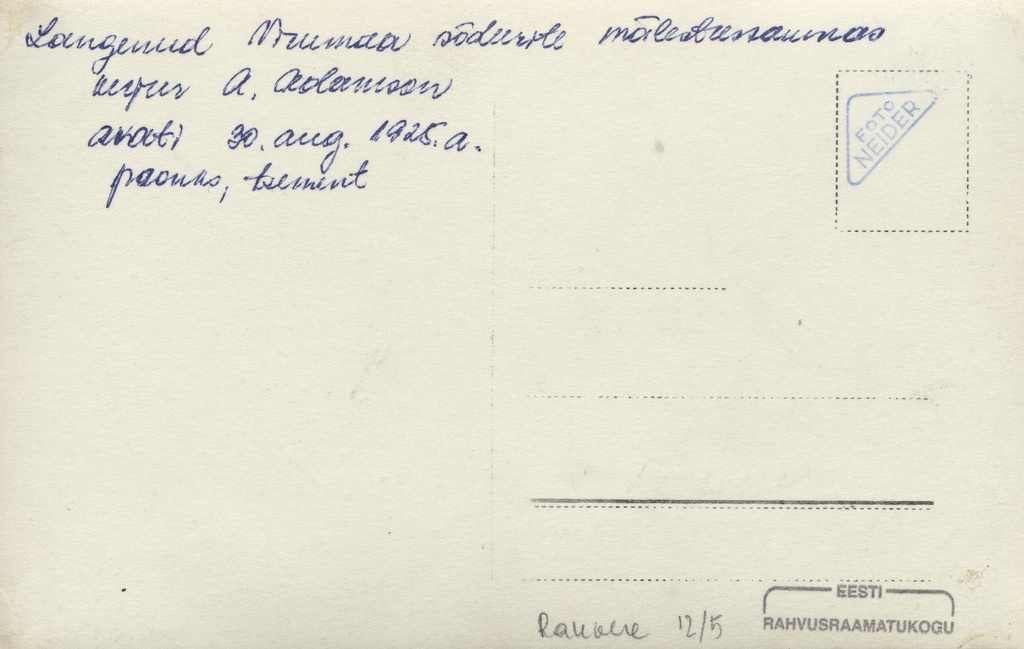 Langenud Virumaa sõdurite mälestussammas
kujur A. Adamson
avati 30. aug. 1925. a.
pronks, tsement
FOTO
NEIDER
Rakvere 12/5
EESTI
RAHVUSRAAMATUKOGU